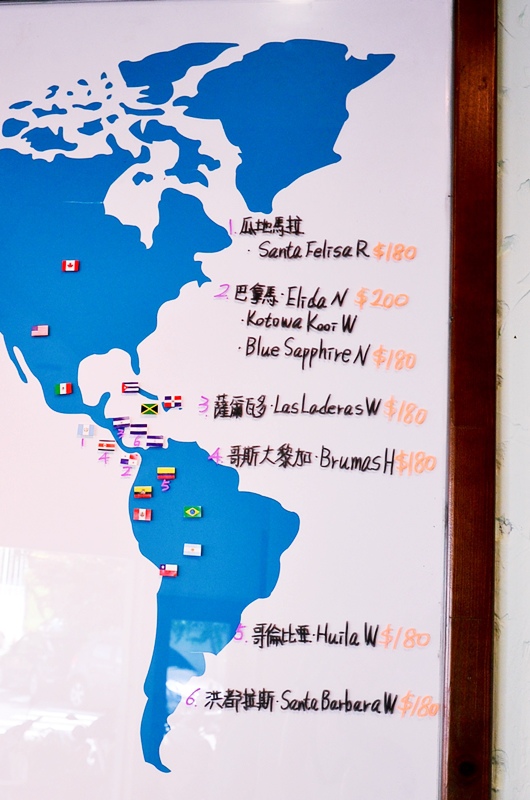 1. 瓜地馬拉
· Santa Felisa R $180
2. 巴拿馬 · Elida N $200
· Kotowa Kooi W
· Blue Sapphire N $180
3. 薩爾瓦多 · Las Laderas W $180
4. 哥斯大黎加 · Brumas H $180
5. 哥倫比亞 · Huila W $180
6. 洪都拉斯 · Santa Barbara W $180
1
3
6
4
2
5